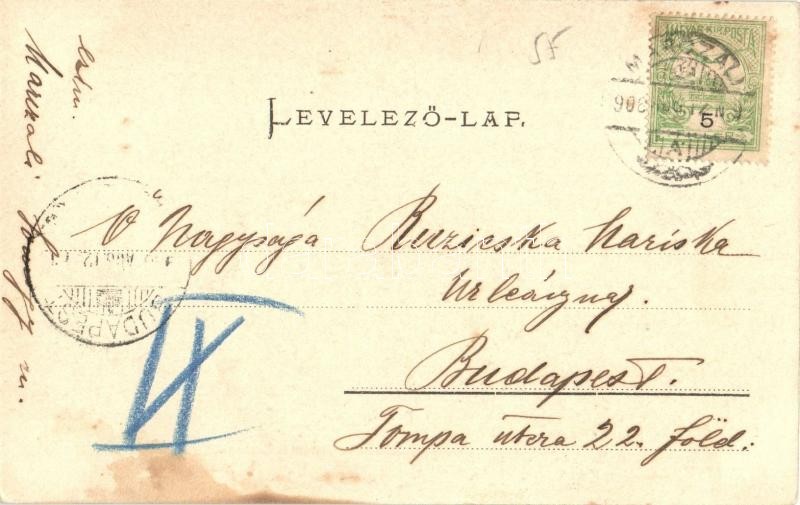 LEVELEZŐ-LAP.
MAGYAR KIR. POSTA
5
BUDAPEST
Ő Nagysága Ruzicska Mariska
Urleánynaj.
Budapest.
Tompa utcza 22. föld:
Marczali